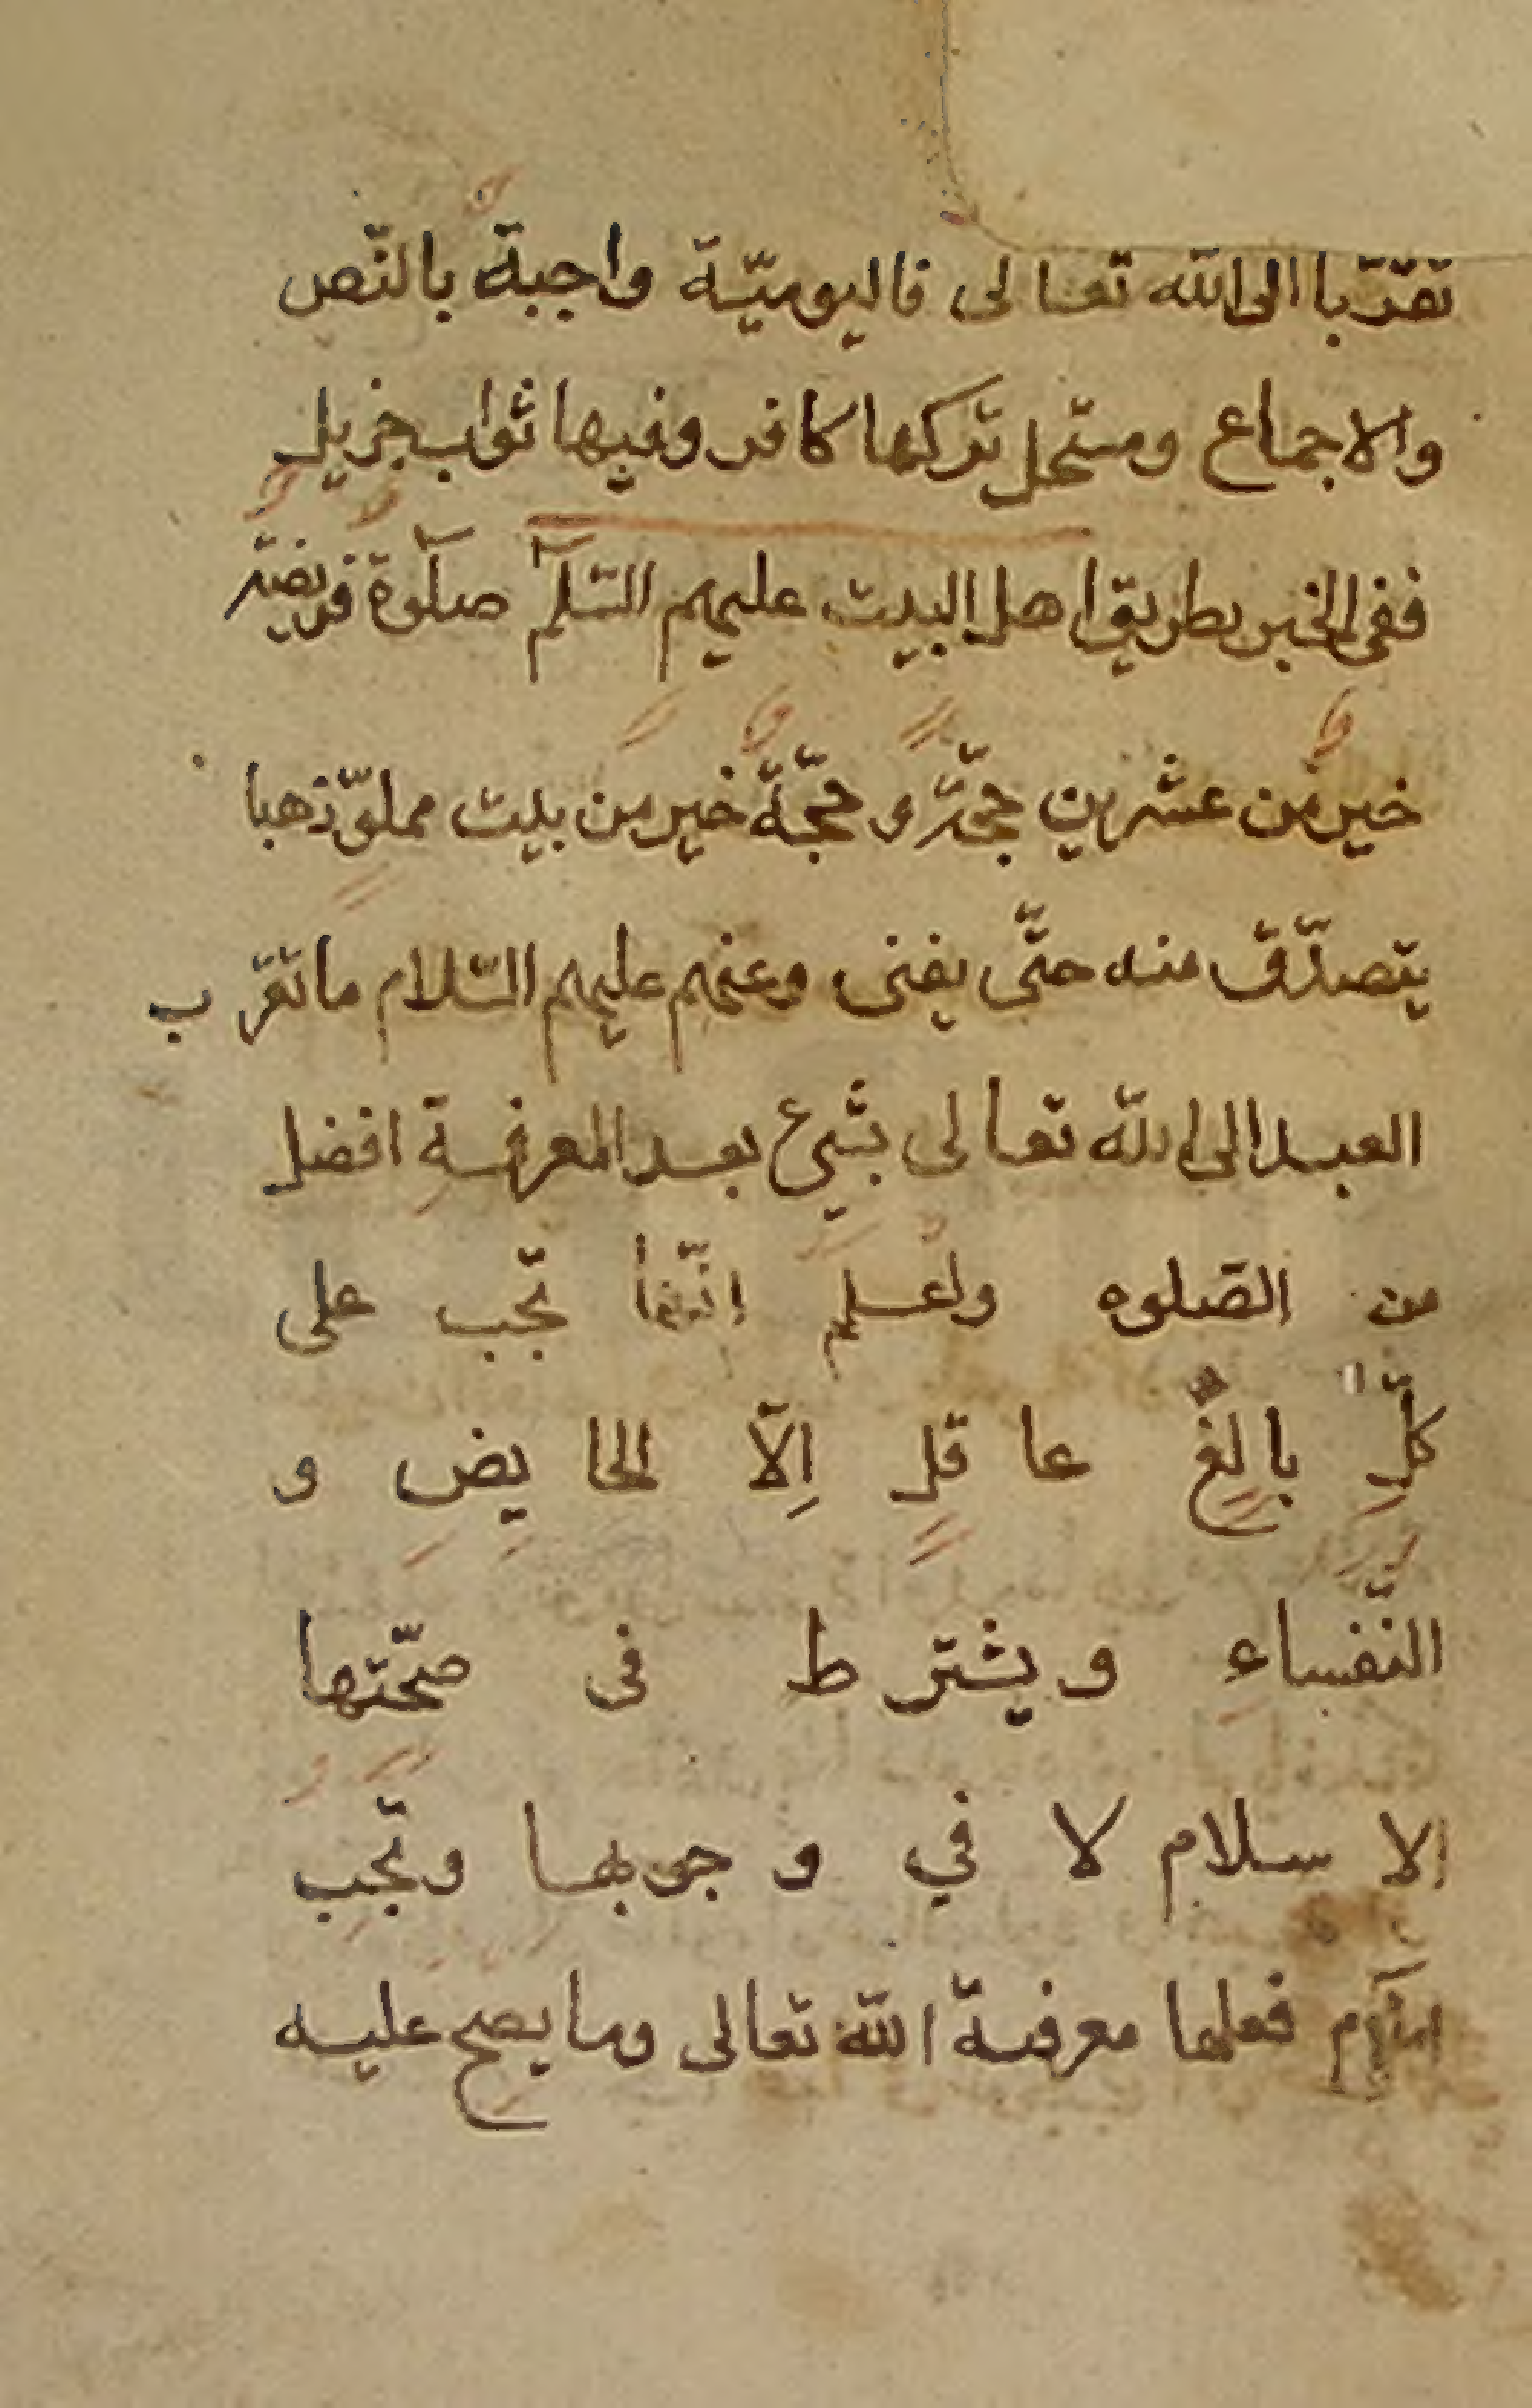 تقرّبا الى الله تعالى فاليوميّة واجبةٌ بالنّص
والاجماع ومستحل تركها كافر وفيها ثواب جزيل
ففى الخبر بطريق اهل البيت عليهم السّلم صلوةٌ فريضةٌ
خيرٌ من عشرين حجّةً و حجّةٌ خيرٌ من بيت مملوّ ذهبا
يتصدّق منه حتّى يفنى وعنهم عليهم السّلام ما تقرّب
العبد الى الله تعالى بشىء بعد المعرفةِ افضل
من الصّلوه واعلم انّها تجب على
كلِّ بالِغٍ عا قلٍ اِلّا الحا يِضِ و
النَّفساءِ و يشتر ط فى صحّتها
الا سلام لا في و جوبها وتَجِبُ
فعلها معرفة الله تعالى وما يصح عليه